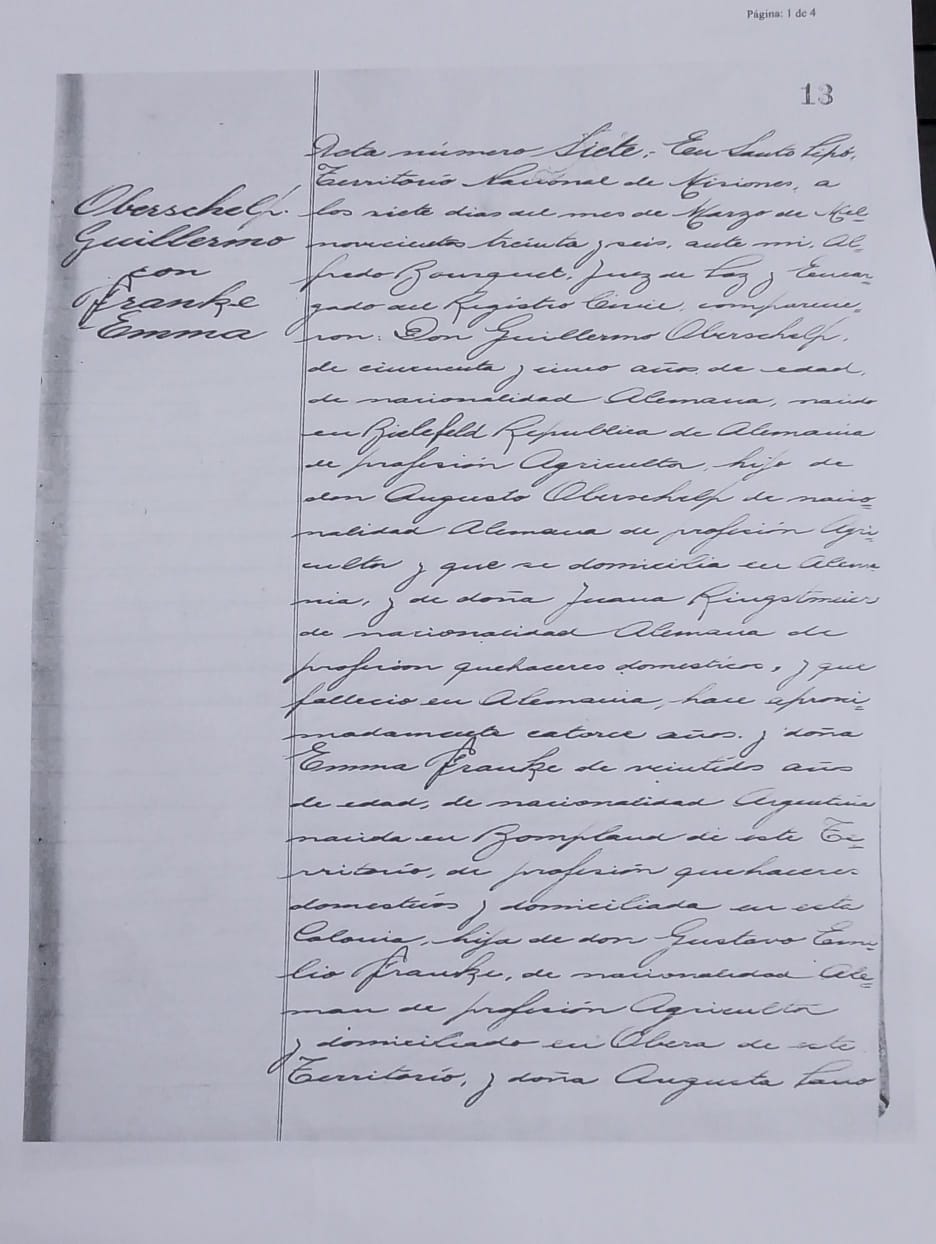 Página: 1 de 4
13
Oberschelp.
Guillermo
con
Franke
Emma
Acta número Siete. En Santo Pipó,
Territorio Nacional de Misiones, a
los siete dias del mes de Marzo de Mil
novecientos treinta y seis, ante mi, Al=
fredo Bourquet, Juez de Paz y Encar=
gado del Registro Civil, comparecie=
ron: Don Guillermo Oberschelp,
de cincuenta y cinco años de edad,
de nacionalidad Alemana, nacido
en Bielefeld Republica de Alemania
de profesión Agricultor, hijo de
don Augusto Oberschelp de nacio=
nalidad Alemana de profesión Agri=
cultor y que se domicilia en Alema
nia, y de doña Juana Ringstmeier
de nacionalidad Alemana de
profesion quehaceres domesticos, y que
fallecio en Alemania, hace aproxi=
madamente catorce años. y doña
Emma Franke de veintidos años
de edad, de nacionalidad Argentina
nacida en Bompland de este Te=
rritorio, de profesión quehaceres
domesticos y domiciliada en esta
Colonia, hija de don Gustavo Emi
lio Franke, de nacionalidad Ale=
man de profesión Agricultor
y domiciliado en Obera de este
Territorio, y doña Augusta